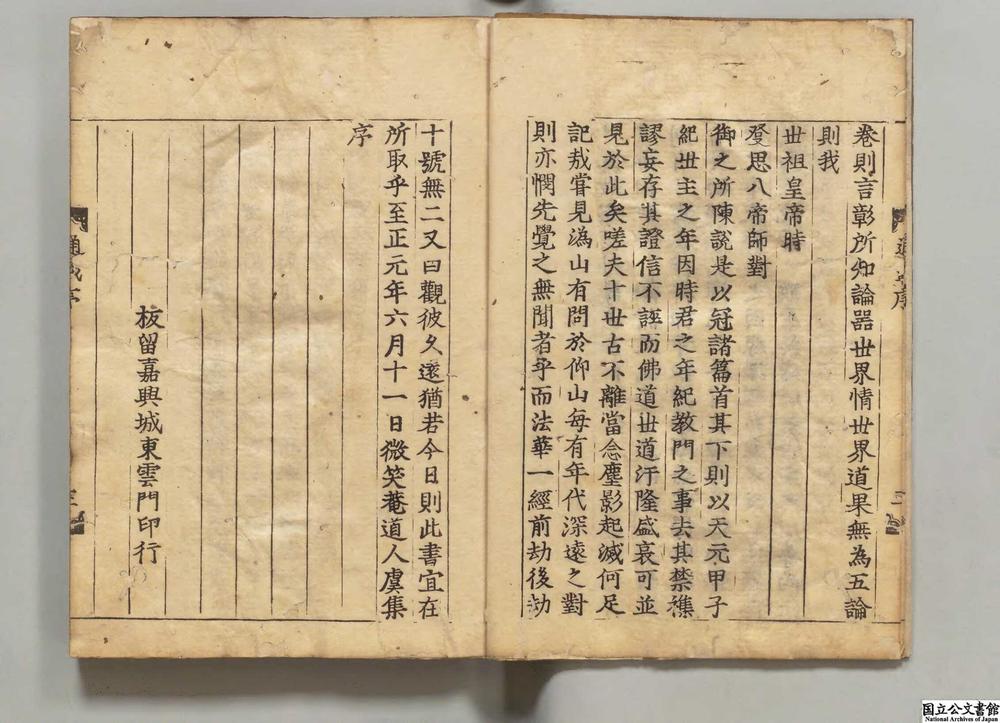 卷則言彰所知論器世界情世界道果無為五論
則我
世祖皇帝時
癹思八帝師對
御之所陳說是以冠諸篇首其下則以天元甲子
紀世主之年因時君之年紀教門之事去其禁襍
謬妄存其證信不誣而佛道世道汙隆盛衰可並
見於此矣嗟夫十世古不離當念塵影起滅何足
記哉甞見溈山有問於仰山每有年代深遠之對
則亦憫先覺之無聞者乎而法華一經前劫後劫
十號無二又曰觀彼久遠猶若今日則此書宜在
所取乎至正元年六月十一日微笑菴道人虞集
序
板留嘉興城東雲門印行
通 序
三
通 序
三
国立公文書館
National Archives of Japan